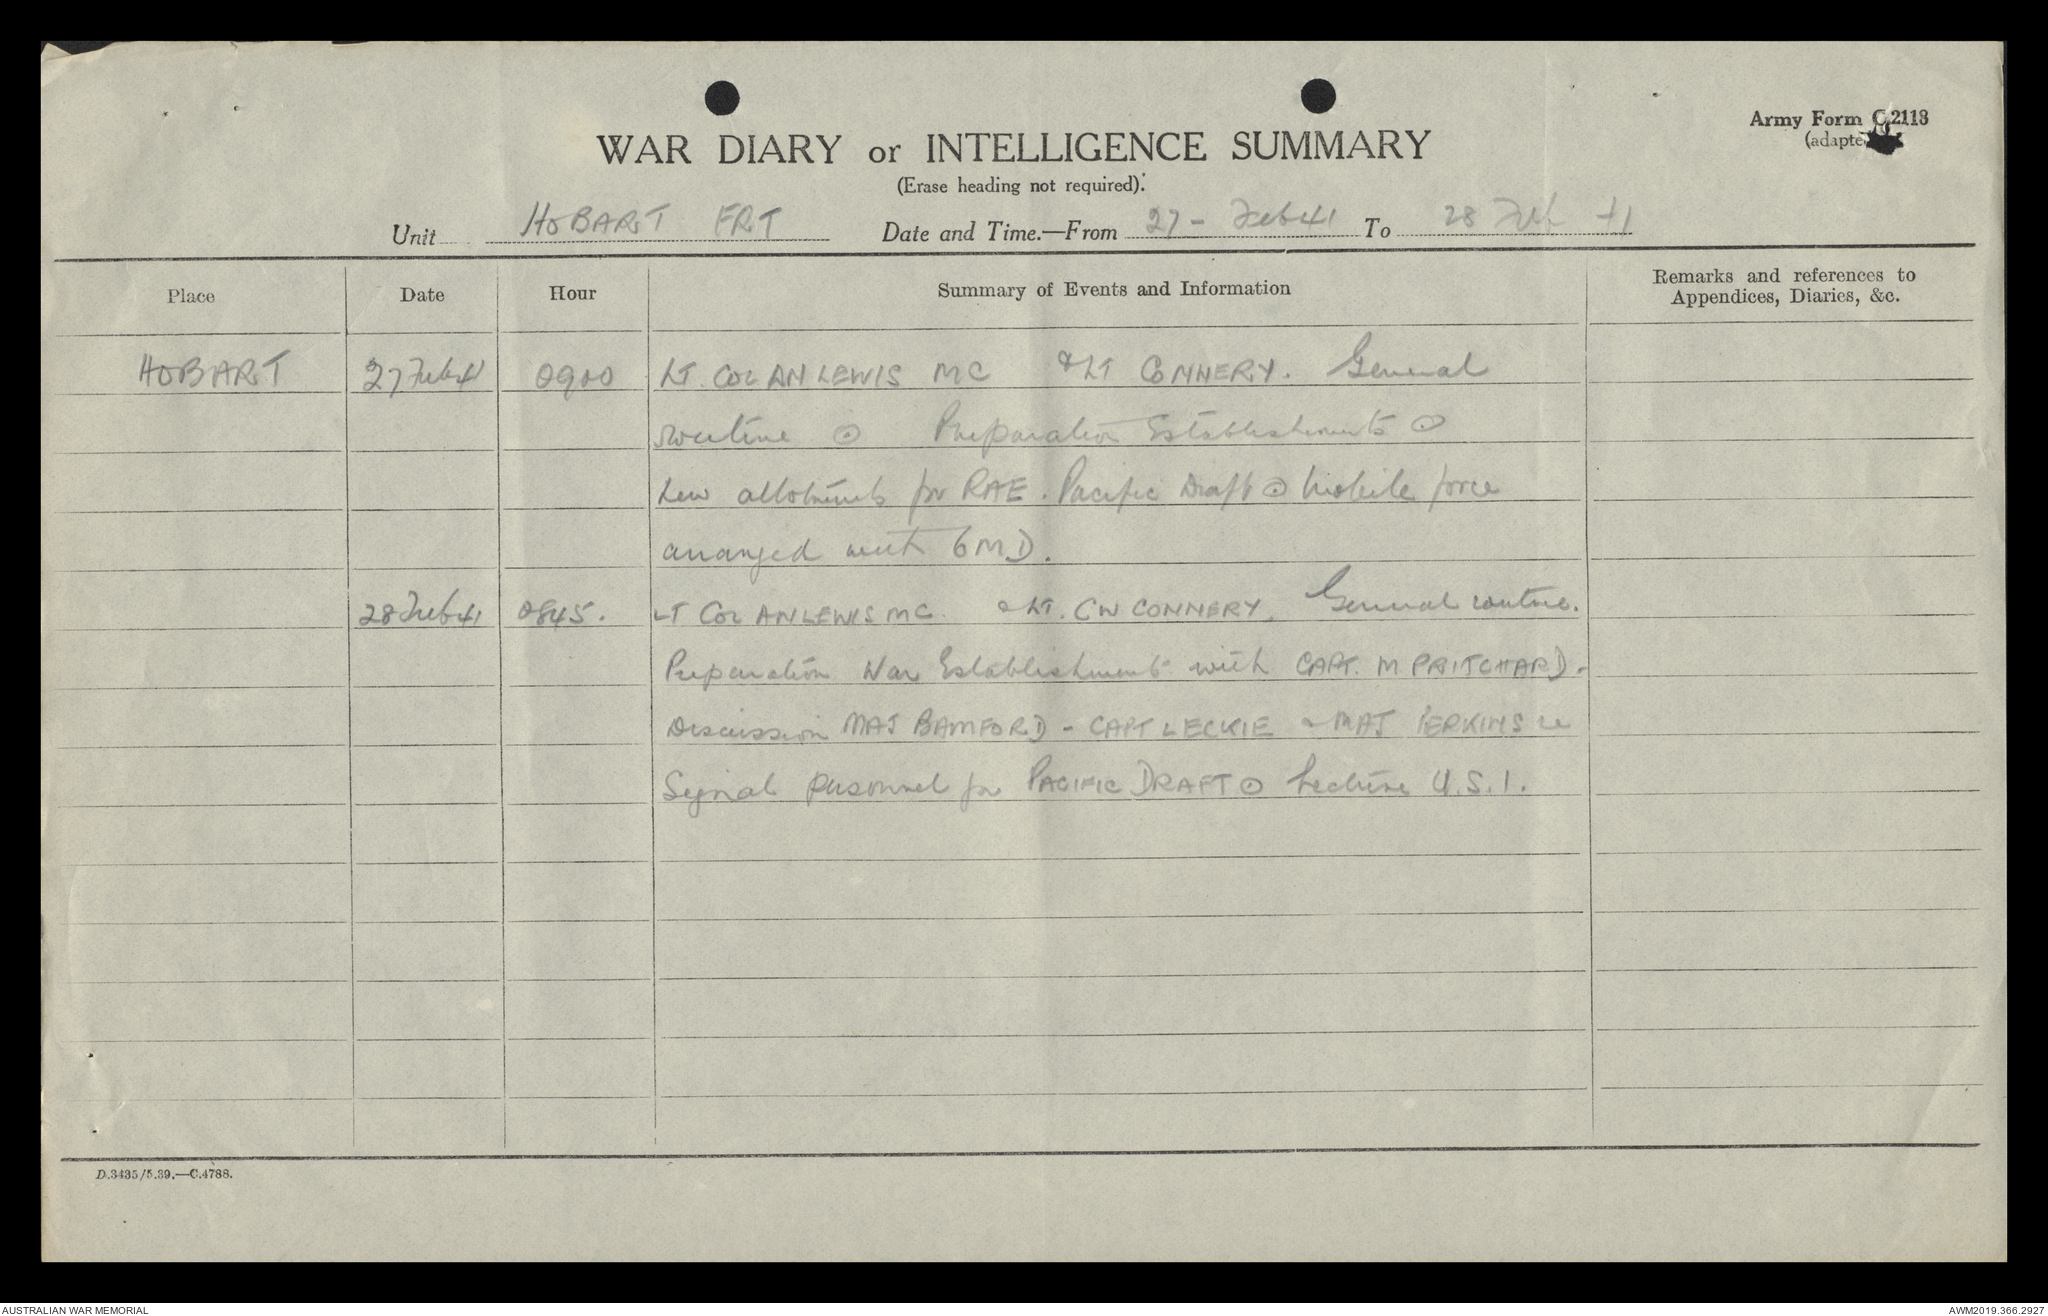 Army Form C.2118
(adapte
WAR DIARY or INTELLIGENCE SUMMARY
(Erase heading not required).
Unit HOBART FRT Date and Time.—From 27 - Feb 41 To 28 Feb 41
Place Date Hour Summary of Events and Information Remarks and references to
Appendices, Diaries, &c.
HOBART 27 Feb 41 0900 LT. COL AN LEWIS MC & LT CONNERY. General
routine ⊙ Preparation Establishments ⊙
New allotments for RAE. Pacific Draft ⊙ Mobile force
arranged with 6 M.D.
28 Feb 41 0845. LT COL AN LEWIS MC. & LT. CW CONNERY. General routine.
Preparation War Establishment with CAPT. M PRITCHARD -
Discussion MAJ BAMFORD - CAPT LECKIE & MAJ PERKINS re
Signal personnel for PACIFIC DRAFT ⊙ Lecture U.S.I.
D.3435/5.39.—C.4788.
AUSTRALIAN WAR MEMORIAL AWM2019.366.2927